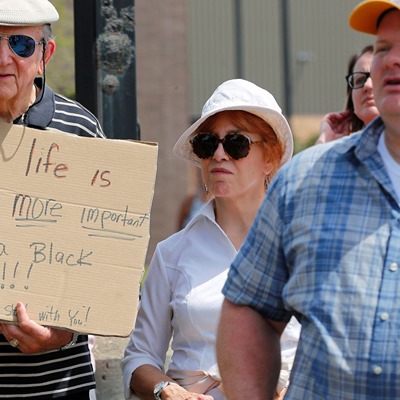 life is
MORE important
a Black
!!!
with You!